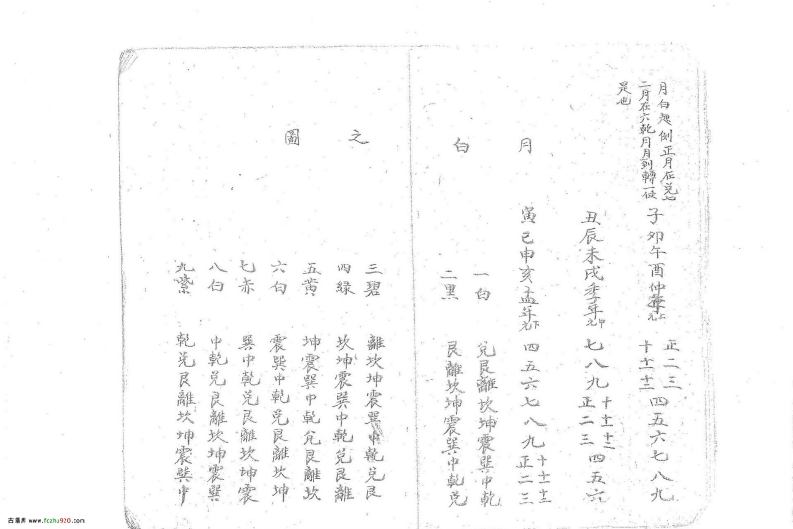 月白起例正月在兌七
二月在六乾月月到轉一位
是也
子卯午酉仲年上元 正二三四五六七八九
十十一十二
丑辰未戌季年中元 七八九正二三四五六
十十一十二
寅巳申亥孟年下元 四五六七八九正二三
十十一十二
月白
一白 兌艮離坎坤震巽中乾
二黑 艮離坎坤震巽中乾兌
之圖
三碧 離坎坤震巽中乾兌艮
四綠 坎坤震巽中乾兌艮離
五黃 坤震巽中乾兌艮離坎
六白 震巽中乾兌艮離坎坤
七赤 巽中乾兌艮離坎坤震
八白 中乾兌艮離坎坤震巽
九紫 乾兌艮離坎坤震巽中
古籍库 www.fczhu920.com